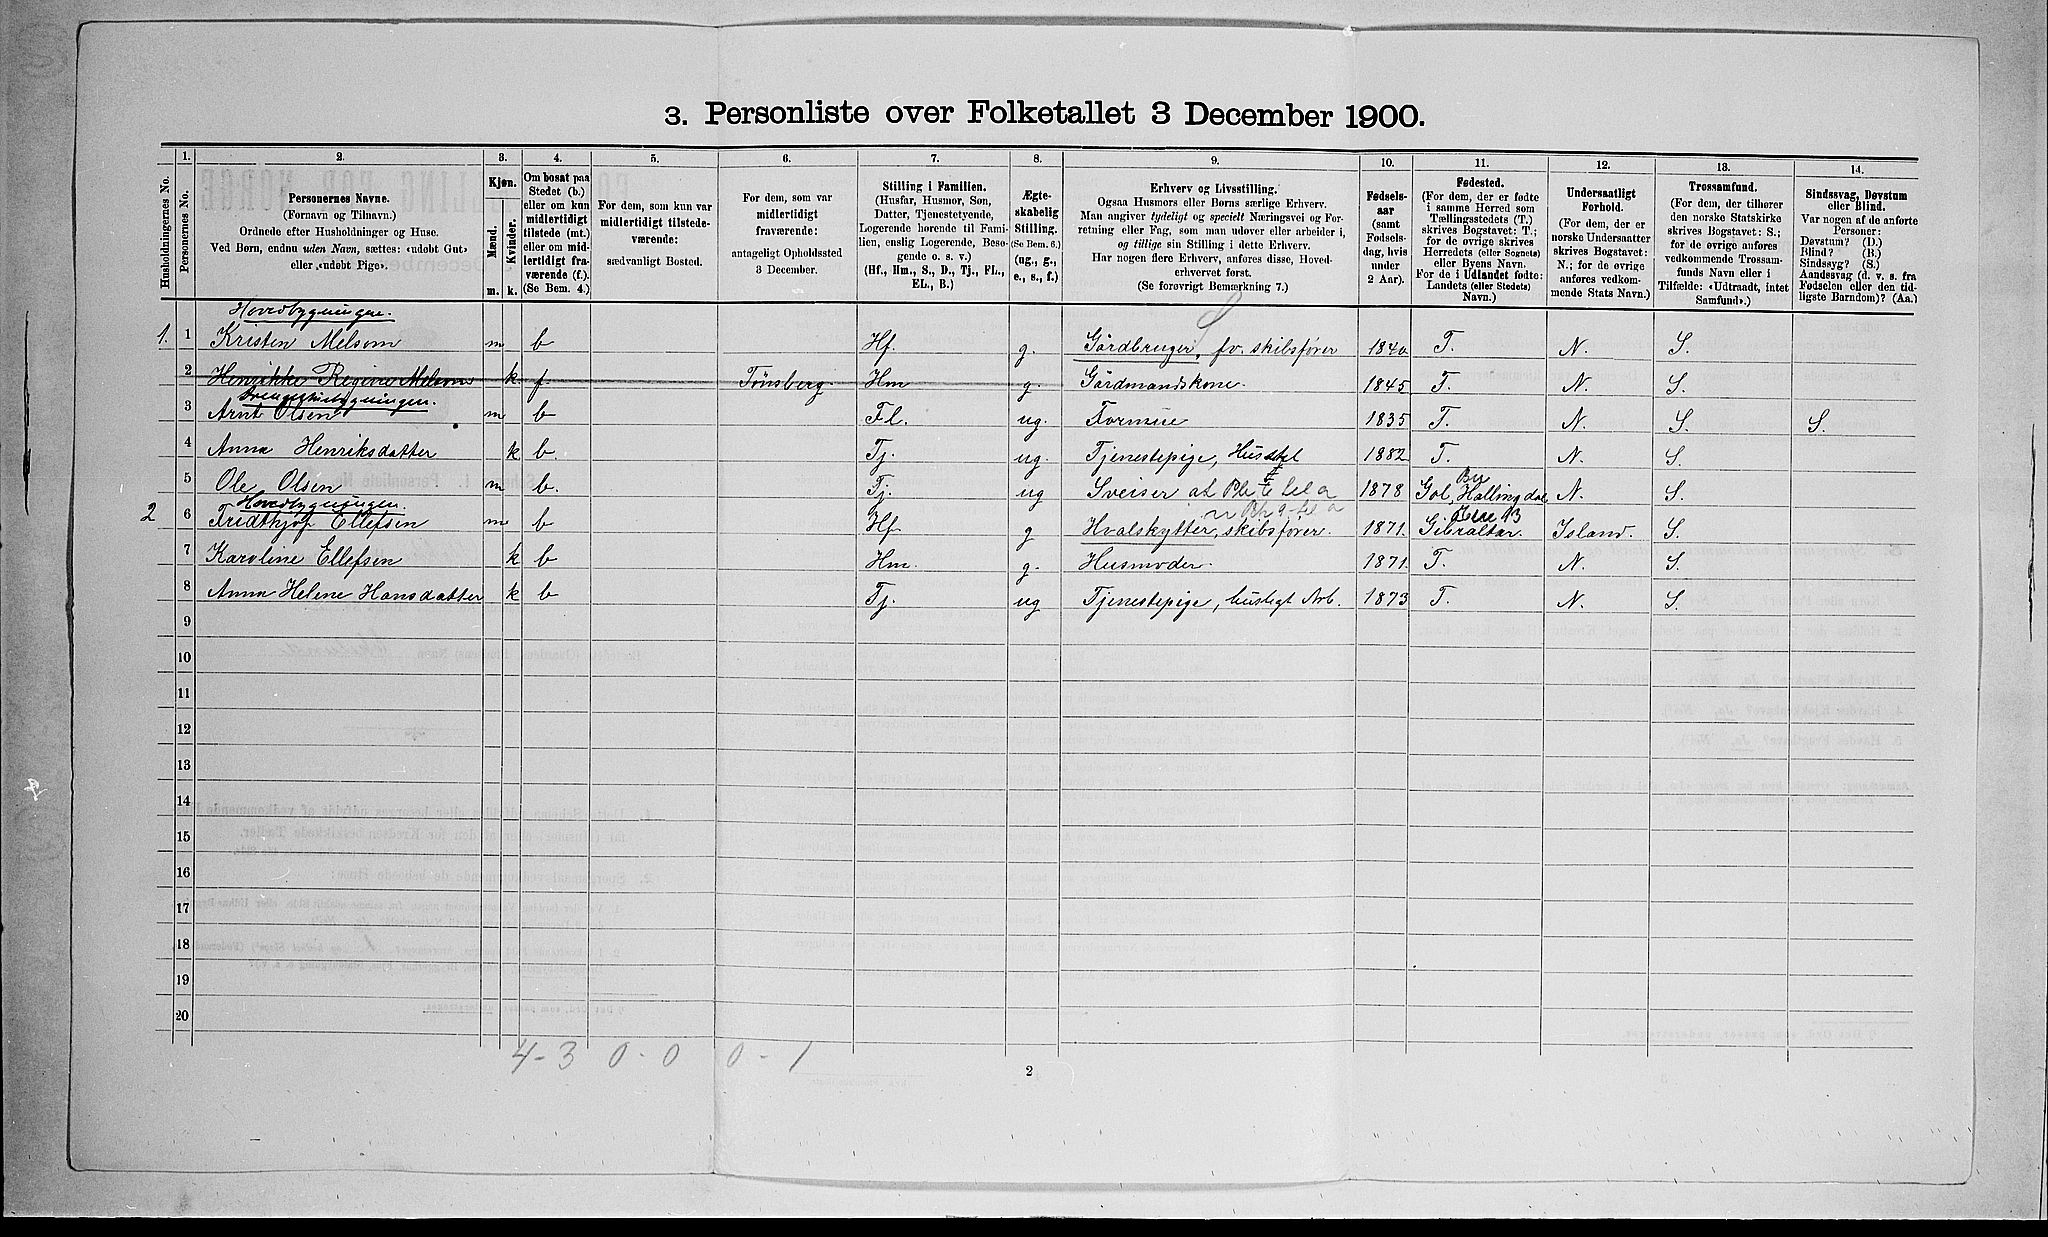 3. Personliste over Folketallet 3 December 1900.
Husholdningernes No.
1.
Personernes No.
2.
Personernes Navne.
(Fornavn og Tilnavn.)
Ordnede efter Husholdninger og Huse.
Ved Børn, endnu uden Navn, sættes: «udøbt Gut»
eller «udøbt Pige».
3.
Kjøn.
Mænd.
Kvinder.
m. k.
4.
Om bosat paa
Stedet (b.)
eller om kun
midlertidigt
tilstede (mt.)
eller om mid-
lertidigt fra-
værende (f.)
(Se Bem. 4.)
5.
For dem, som kun var
midlertidigt tilstede-
værende:
sædvanligt Bosted.
6.
For dem, som var
midlertidigt
fraværende:
antageligt Opholdssted
3 December.
7.
Stilling i Familien.
(Husfar, Husmor, Søn,
Datter, Tjenestetyende,
Logerende hørende til Fami-
lien, enslig Logerende, Besø-
gende o. s. v.)
(Hf., Hm., S., D., Tj., FL.,
EL., B.)
8.
Ægte-
skabelig
Stilling.
(Se Bem. 6.)
(ug., g.,
e., s., f.)
9.
Erhverv og Livsstilling.
Ogsaa Husmors eller Børns særlige Erhverv.
Man angiver tydeligt og specielt Næringsvei og For-
retning eller Fag, som man udøver eller arbeider i,
og tillige sin Stilling i dette Erhverv.
Har nogen flere Erhverv, anføres disse, Hoved-
erhvervet først.
(Se forøvrigt Bemærkning 7.)
10.
Fødsels-
aar
(samt
Fødsels-
dag, hvis
under
2 Aar).
11.
Fødested.
(For dem, der er fødte
i samme Herred som
Tællingsstedets (T.)
skrives Bogstavet: T.;
for de øvrige skrives
Herredets (eller Sognets)
eller Byens Navn.
For de i Udlandet fødte:
Landets (eller Stedets)
Navn.)
12.
Undersaatligt
Forhold.
(For dem, der er
norske Undersaatter
skrives Bogstavet:
N.; for de øvrige
anføres vedkom-
mende Stats Navn.)
13.
Trossamfund.
(For dem, der tilhører
den norske Statskirke
skrives Bogstavet: S.;
for de øvrige anføres
vedkommende Trossam-
funds Navn eller i
Tilfælde: «Udtraadt, intet
Samfund».)
14.
Sindssvag, Døvstum
eller Blind.
Var nogen af de anførte
Personer:
Døvstum? (D.)
Blind? (B.)
Sindssyg? (S.)
Aandssvag (d. v. s. fra
Fødselen eller den tid-
ligste Barndom)? (Aa.)
Hovedbygningen.
1. 1 Kristen Melsom m b Hf. g. Gårdbruger, fv. skibsfører 1840 T. N. S.
2 Henrikke Regine Melsom k f. Tønsberg. Hm g. Gårdmandskone. 1845 T. N. S.
3 Arnt Olsen m b Fl. ug. Formue 1835 T. N. S. S.
4 Anna Henriksdatter k b. Tj. ug. Tjenestepige, 1882 T. N. S.
5 Ole Olsen m b. Tj. ug Sveiser 1878 Gol, Hallingdal N. S.
Hovedbygningen.
2 6 Fridthjof Ellefsen m b Hf g Hvalskytter, skibsfører. 1871. Gibraltar. Island. S.
7 Karoline Ellefsen k b Hm. g. Husmoder. 1871. T. N. S.
8 Anna Helene Hansdatter k b Tj. ug Tjenestepige, husligt Arb. 1873 T. N. S.
9
10
11
12
13
14
15
16
17
18
19
20
4-3 0-0 0-1
2